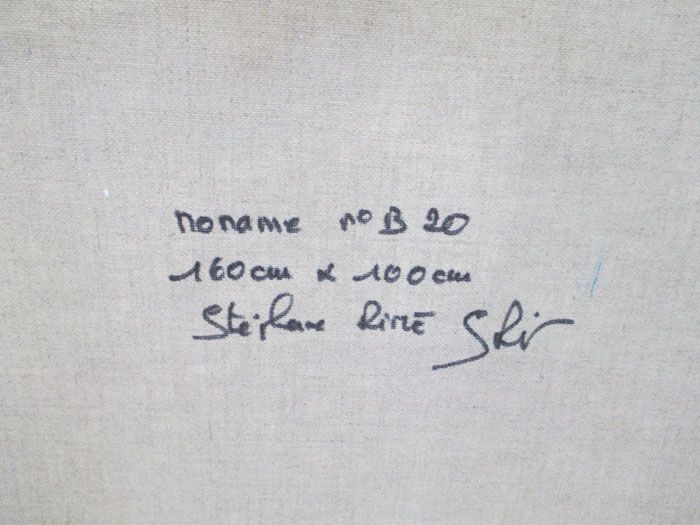 noname n° B 20
160cm x 100cm
Stéphane Rimé